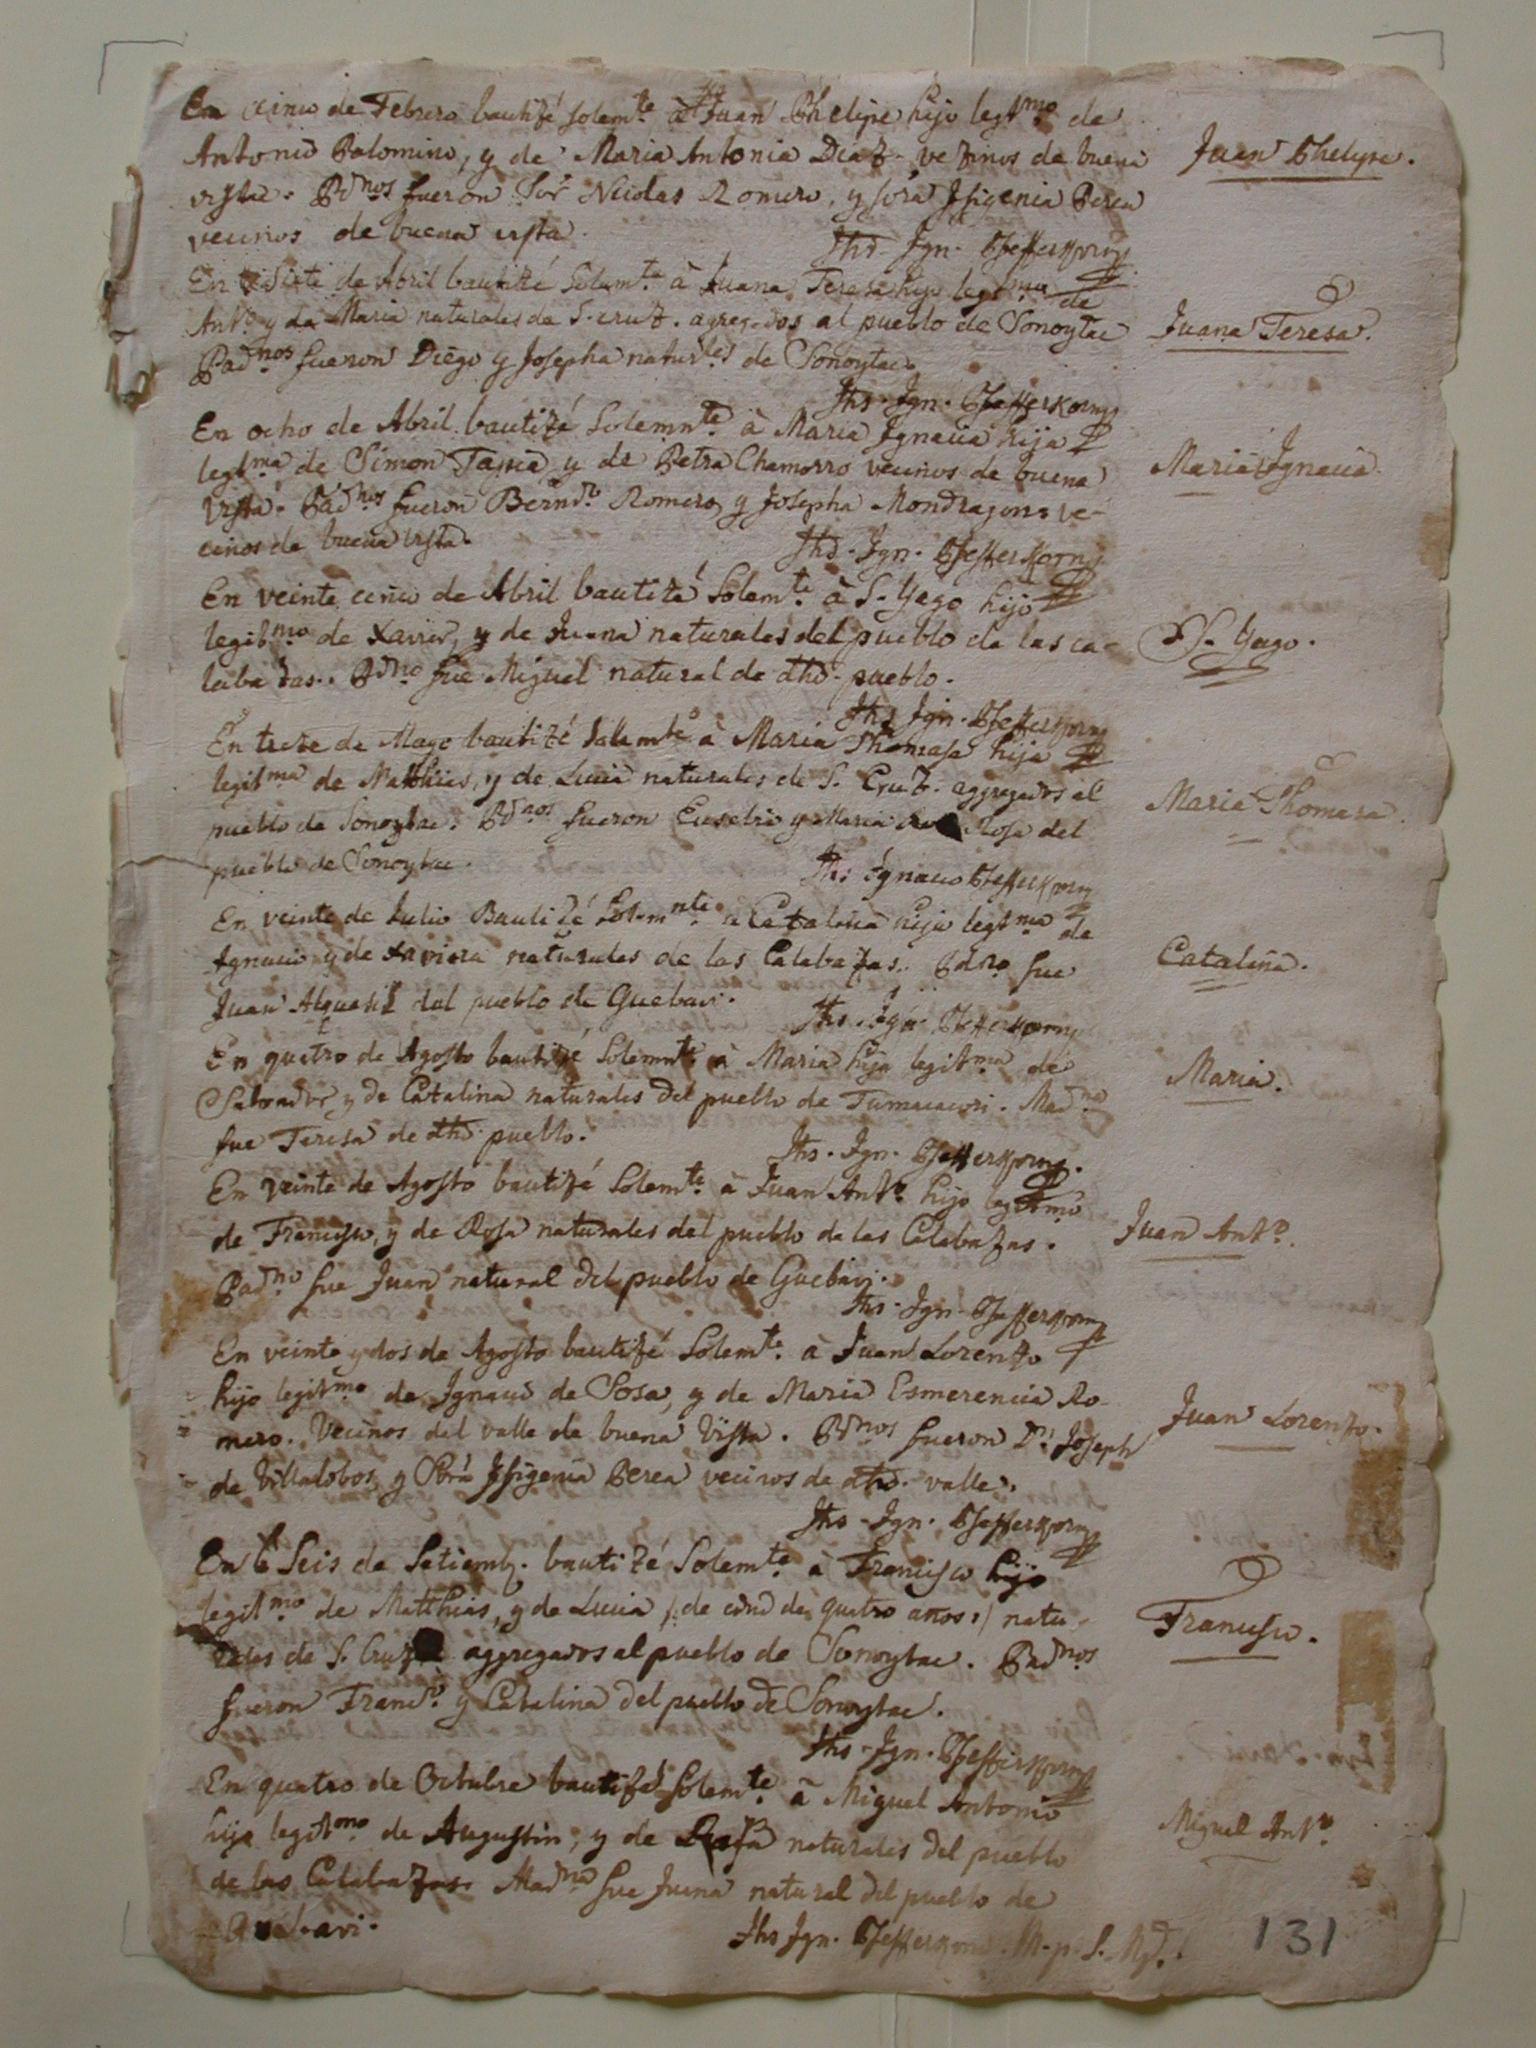 En cinco de Febrero bautizé solemte. à Juan Phelipe hijo legtmo de
Antonio Palomino, y de Maria Antonia Diaz vezinos de buena
vista. Pdnos fueron Sor Nicolas Romero, y sora Ifigenia Perea
vecinos de buena vista.
Juan Phelipe.
Jhs. Ign. Pfefferkorn
En siete de Abril bautizé Solemte. à Juana Teresa hija legtma de
Anto. y de Maria naturales de S. cruz. agregados al pueblo de Sonoytac
Padnos fueron Diego y Josepha naturles de Sonoytac.
Juana Teresa.
Jhs. Ign. Pfefferkorn
En ocho de Abril bautizé Solemnte. à Maria Ignacia hija
legtma de Simon Tapia y de Petra Chamorro vecinos de buena
Vista. Padnos fueron Berndo Romero, y Josepha Mondragon ve-
cinos de buena vista.
Maria Ignacia.
Jhs. Ign. Pfefferkorn
En veinte cinco de Abril bautizé Solemte. à S. Yago hijo
legitmo de Xavier, y de Juana naturales del pueblo de las ca-
labazas. Pdno fue Miguel natural de dho. pueblo.
S. Yago.
Jhs Ign. Pfefferkorn
En treze de Mayo bautizé solemte à Maria Thomasa hija
legitma de Matthias, y de Lucia naturales de S. Cruz. aggregados al
pueblo de Sonoytac. Pdnos fueron Eusebio y Maria Rosa del
pueblo de Sonoytac.
Maria Thomasa.
Jhs Ignacio Pfefferkorn
En veinte de Julio Bautizé Solemnte à Catalina hija legtma de
Ignacio y de Xaviera naturales de las Calabazas. Pdno fue
Juan Alguasil del pueblo de Guebavi.
Catalina.
Jhs. Ign. Pfefferkorn
En quatro de Agosto bautizé Solemnte à Maria hija legitma de
Salvador y de Catalina naturales del pueblo de Tumacacori. Madna
fue Teresa de dho pueblo.
Maria.
Jhs. Ign. Pfefferkorn.
En veinte de Agosto bautizé Solemte. à Juan Anto. hijo legtmo
de Francisco, y de Rosa naturales del pueblo de las Calabazas.
Padno fue Juan natural del pueblo de Guebavi.
Juan Anto.
Jhs. Ign. Pfefferkorn
En veinte y dos de Agosto bautizé Solemte. à Juan Lorenzo
hijo legitmo de Ignacio de Sosa, y de Maria Esmerencia Ro-
mero. Vecinos del valle de buena Vista. Pdnos fueron Dn. Joseph
de Villalobos, y Sora Ifigenia Perea vecinos de dho. valle.
Juan Lorenzo.
Jhs. Ign. Pfefferkorn
En Seis de Setiemb. bautizé Solemte à Francisco hijo
legitmo de Matthias, y de Lucia /: de edad de quatro años :/ natu-
rales de S. Cruz aggregados al pueblo de Sonoytac. Padnos
fueron Franco. y Catalina del pueblo de Sonoytac.
Francisco.
Jhs. Ign. Pfefferkorn
En quatro de Octubre bautizé Solemte à Miguel Antonio
hijo legitmo de Augustin, y de Rosa naturales del pueblo
de las Calabazas. Madna fue Juana natural del pueblo de
Guebavi.
Miguel Anto.
Jhs Ign. Pfefferkorn. M. p. S. J.
131